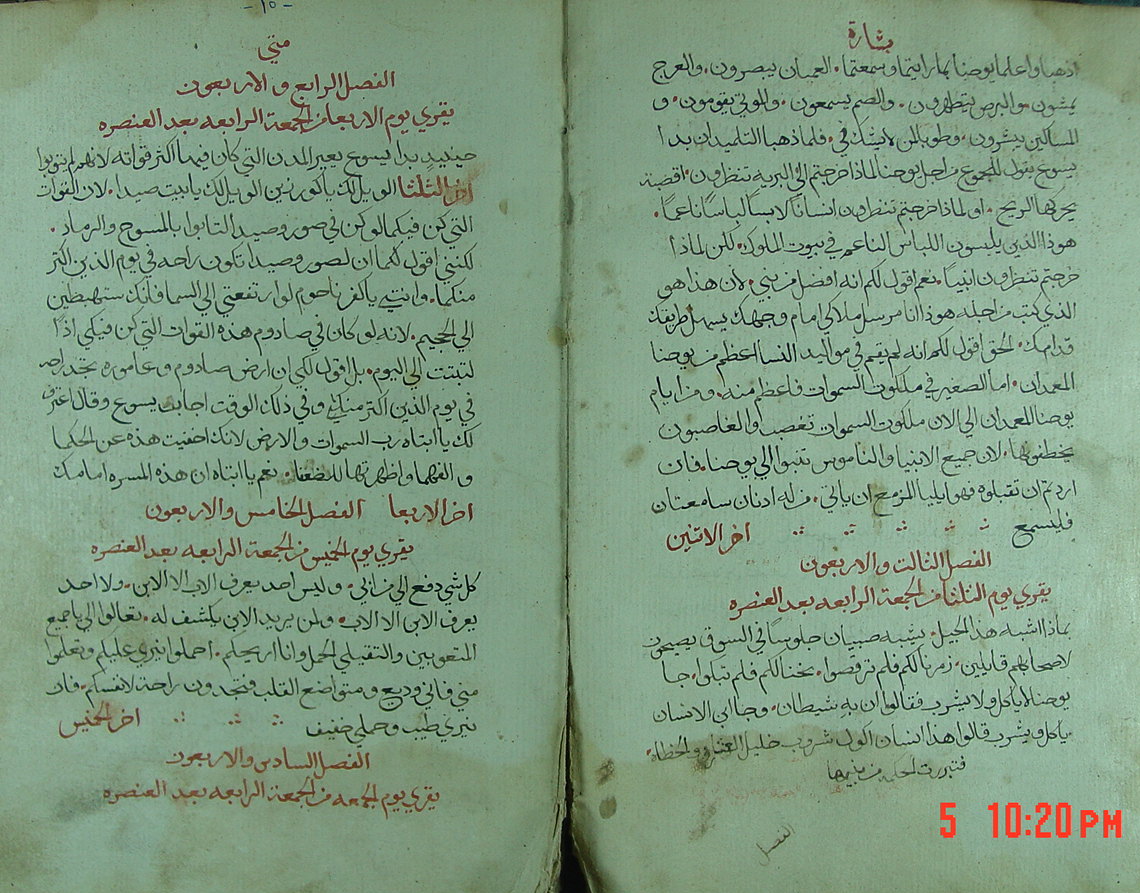 بشارة
اذهبا واعلما يوحنا بما رايتما وسمعتما. العميان يبصرون. والعرج
يمشون والبرص يتطهرون. والصم يسمعون. والموتي يقومون. و
المساكين يبشرون. وطوبا لمن لا يشك في. فلما ذهبا التلميذان بدا
يسوع يقول للجموع من اجل يوحنا لماذا خرجتم الي البريه تنظرون. اقصبة
يحركها الريح. او لماذا خرجتم تنظرون انسانا لابسا لباسا ناعما.
هوذا الذين يلبسون اللباس الناعم في بيوت الملوك. لكن لماذا
خرجتم تنظرون انبيا. نعم اقول لكم انه افضل من نبي. لان هذا هو
الذي كتب من اجله هوذا انا مرسل ملاكي امام وجهك يسهل طريقك
قدامك. الحق اقول لكم انه لم يقم في مواليد النسا اعظم من يوحنا
المعمدان. اما الصغير في ملكوت السموات فاعظم منه. ومن ايام
يوحنا المعمدان الي الان ملكوت السموات تغصب والغاصبون
يخطفونها. لان جميع الانبيا والناموس تنبوا الي يوحنا. فان
اردتم ان تقبلوه فهو ايليا المزمع ان ياتي. من له اذنان سامعتان
فليسمع اخر الاتنين
الفصل الثالت والاربعون
يقري يوم الثلثا من الجمعة الرابعه بعد العنصره
بماذا اشبه هذا الجيل. يشبه صبيان جلوسا في السوق يصيحون
لاصحابهم قايلين. زمرنا لكم فلم ترقصوا. نحنا لكم فلم تبكوا. جا
يوحنا لا ياكل ولا يشرب فقالوا ان به شيطان. وجا ابن الانسان
ياكل ويشرب قالوا هذا انسان اكول شروب خليل العشارين والخطاه
فتبررت الحكمه من بنيها
الفصل
-١٥-
متي
الفصل الرابع والاربعون
يقري يوم الاربعا من الجمعة الرابعه بعد العنصره
حينيذ بدا يسوع يعير المدن التي كان فيها اكثر قواته لانهم لم يتوبوا
اخر الثلثا الويل لك يا كورزين الويل لك يا بيت صيدا. لان القوات
التي كن فيكما لو كن في صور وصيدا لتابوا بالمسوح والرماد.
لكنني اقول لكما ان لصور وصيدا تكون راحه في يوم الدين اكثر
منكما. وانتي يا كفرناحوم لو ارتفعتي الي السما فانك ستهبطين
الي الجحيم. لانه لو كان في صادوم هذه القوات التي كن فيكي اذا
لثبتت الي اليوم. بل اقول لكي ان ارض صادوم وعاموره تجد راحه
في يوم الدين اكثر منكي وفي ذلك الوقت اجاب يسوع وقال اعترف
لك يا ابتاه رب السموات والارض لانك اخفيت هذه عن الحكما
والفهما واظهرتها للضعفا. نعم يا ابتاه ان هذه المسره امامك
اخر الاربعا الفصل الخامس والاربعون
يقري يوم الخميس من الجمعة الرابعه بعد العنصره
كل شي دفع الي من ابي. وليس احد يعرف الاب الا الابن. ولا احد
يعرف الابن الا الاب. ولمن يريد الابن يكشف له. تعالوا الي يا جميع
المتعوبين والثقيلي الحمل وانا اريحكم. احملوا نيري عليكم وتعلموا
مني فاني وديع ومتواضع القلب فتجدون راحة لانفسكم. فان
نيري طيب وحملي خفيف اخر الخميس
الفصل السادس والاربعون
يقري يوم الجمعه من الجمعة الرابعه بعد العنصره
5 10:20 PM